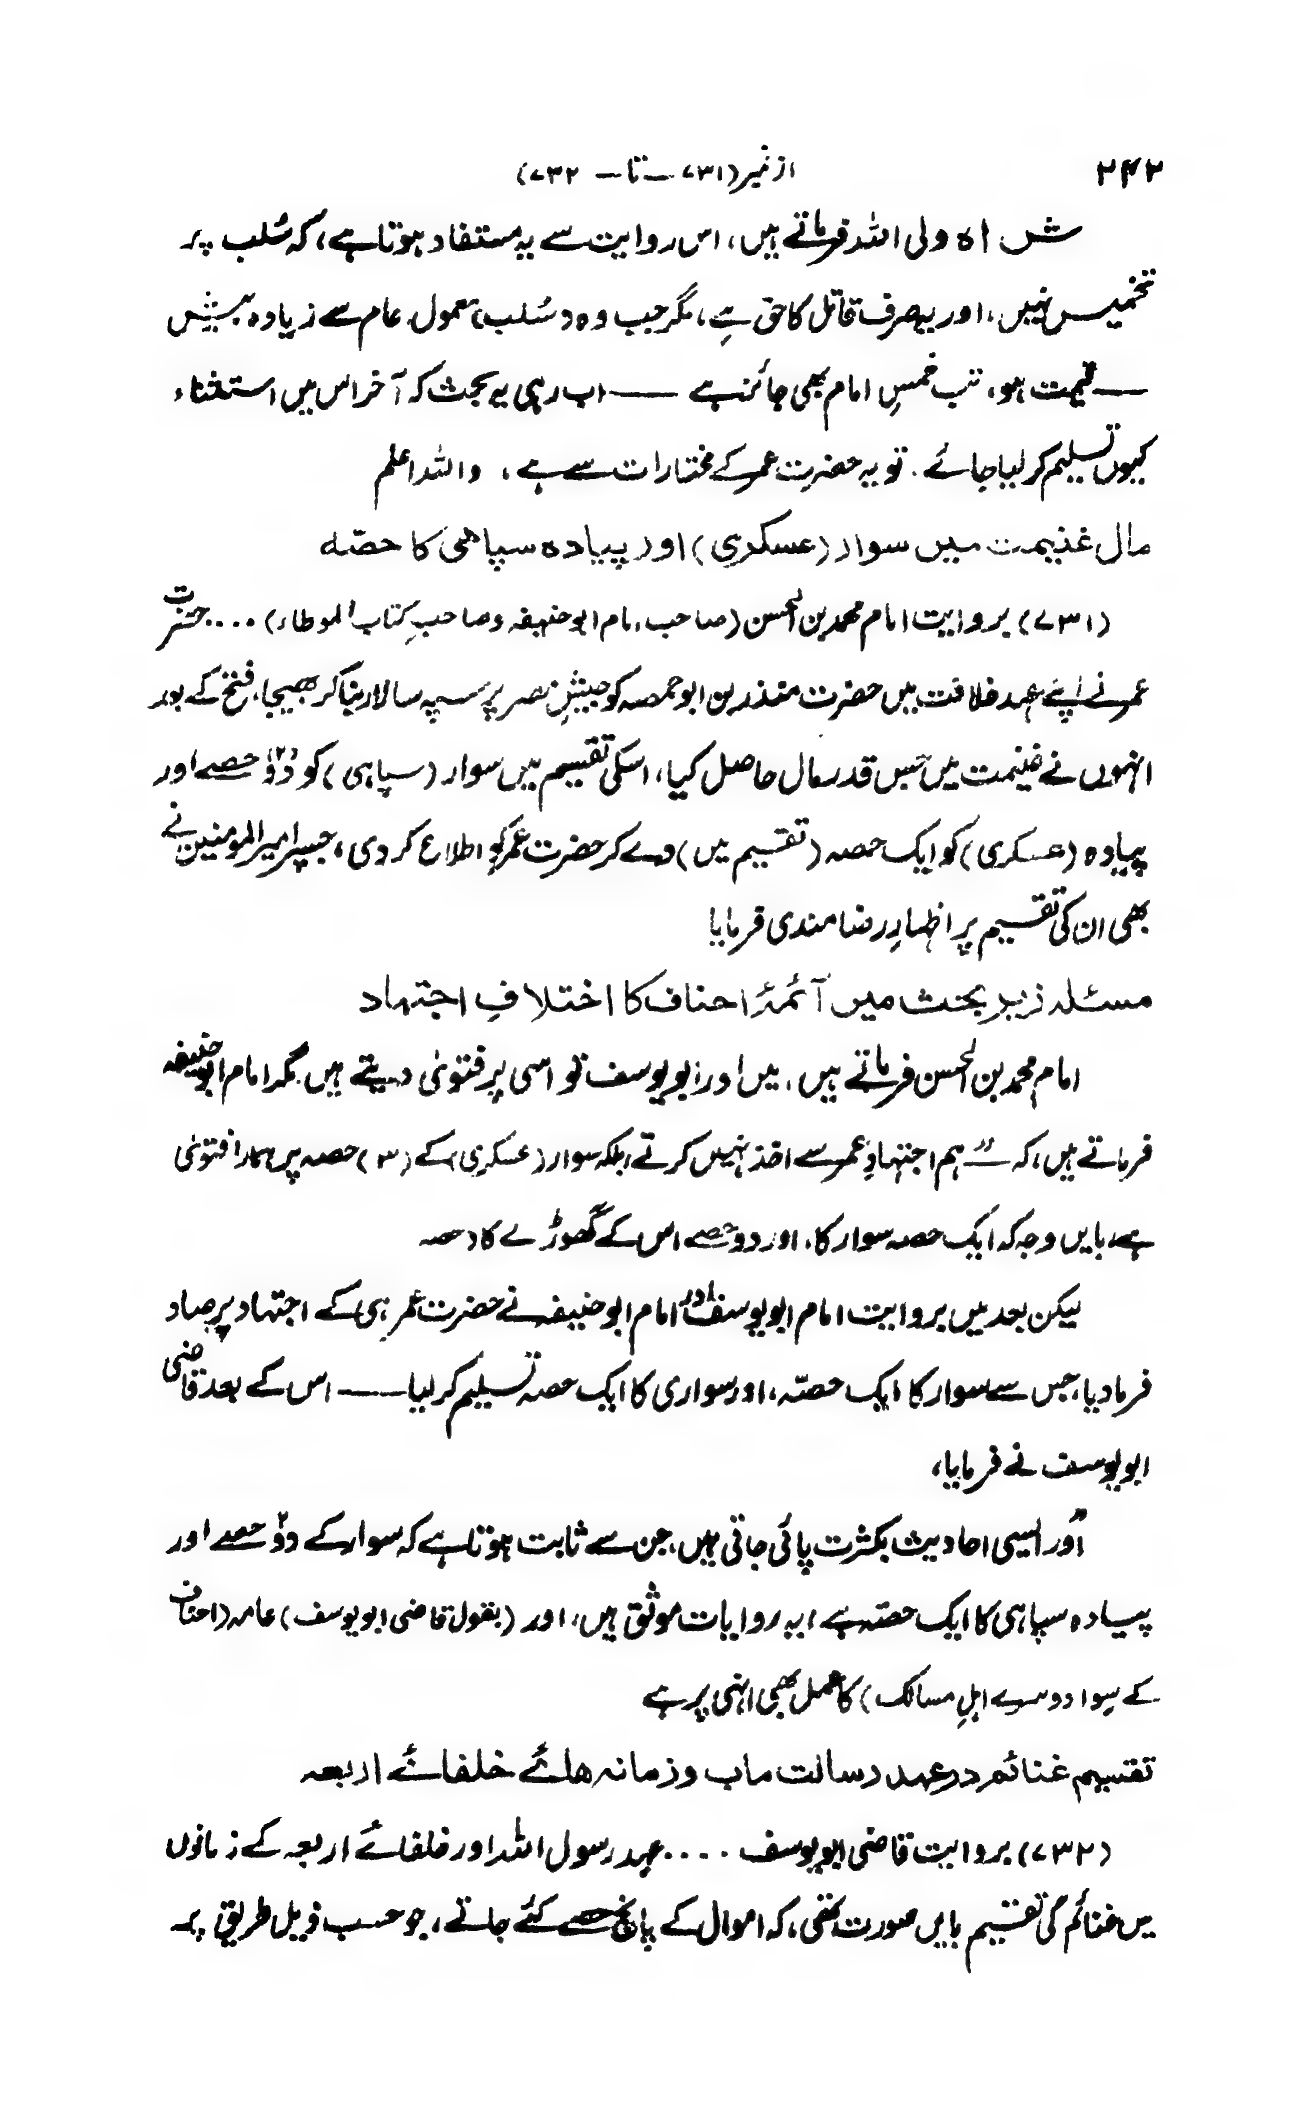 ۲۴۲ از نمبر (۷۳۱ — تا — ۷۳۲)
شاہ ولی اللہ فرماتے ہیں، اس روایت سے یہ مستفاد ہوتا ہے، کہ سُلب پر
تخمیس نہیں، اور یہ صرف قاتل کا حق ہے، مگر جب وہ (سُلب) معمول عام سے زیادہ بیش
— قیمت ہو، تب خمسِ امام بھی جائز ہے — اب رہی یہ بحث کہ آخر اس میں استثناء
کیوں تسلیم کر لیا جائے۔ تو یہ حضرت عمر کے مختارات سے ہے، واللہ اعلم
مال غنیمت میں سوار (عسکری) اور پیادہ سپاھی کا حصّہ
(۷۳۱) بروایت امام محمد بن الحسن (صاحب امام ابو حنیفہ وصاحبِ کتاب الموطاء) .... حضرت
عمر نے اپنے عہد خلافت میں حضرت منذر بن ابو حمصہ کو جیشِ نصر پر سپہ سالار بنا کر بھیجا، فتح کے بعد
انہوں نے غنیمت میں جس قدر مال حاصل کیا، اسکی تقسیم میں سوار (سپاہی) کو دو۲ حصے اور
پیادہ (عسکری) کو ایک حصہ (تقسیم میں) دے کر حضرت عمر کو اطلاع کر دی، جسپر امیر المومنین نے
بھی ان کی تقسیم پر اظہارِ رضا مندی فرمایا
مسئلہ زیر بحث میں آئمۂ احناف کا اختلافِ اجتہاد
امام محمد بن الحسن فرماتے ہیں، میں اور ابو یوسف تو اسی پر فتویٰ دیتے ہیں مگر امام ابو حنیفہ
فرماتے ہیں، کہ — "ہم اجتہادِ عمر سے اخذ نہیں کرتے بلکہ سوار (عسکری) کے (۳) حصہ پر ہمارا فتویٰ
ہے، بایں وجہ کہ ایک حصہ سوار کا، اور دو حصے اس کے گھوڑے کا حصہ
لیکن بعد میں بروایت امام ابو یوسف اور امام ابو حنیفہ نے حضرت عمر ہی کے اجتہاد پر صاد
فرما دیا، جس سے سوار کا ایک حصّہ، اور سواری کا ایک حصہ تسلیم کر لیا — اس کے بعد قاضی
ابو یوسف نے فرمایا،
اور ایسی احادیث بکثرت پائی جاتی ہیں، جن سے ثابت ہوتا ہے کہ سوار کے دو۲ حصے اور
پیادہ سپاہی کا ایک حصّہ ہے، یہ روایات موثق ہیں، اور (بقول قاضی ابو یوسف) عامہ (احناف
کے سوا دوسرے اہلِ مسالک) کا عمل بھی انہی پر ہے
تقسیم غنائم در عہد رسالت ماب وزمانہ ھائے خلفائے اربعہ
(۷۳۲) بروایت قاضی ابو یوسف .... عہد رسول اللہ اور خلفائے اربعہ کے زمانوں
میں غنائم کی تقسیم بایں صورت تھی، کہ اموال کے پانچ حصے کئے جاتے، جو حسب ذیل طریق پر